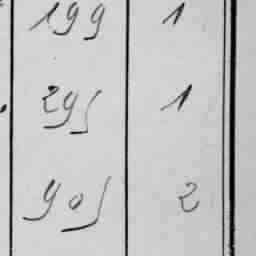 199 1
295 1
905 2